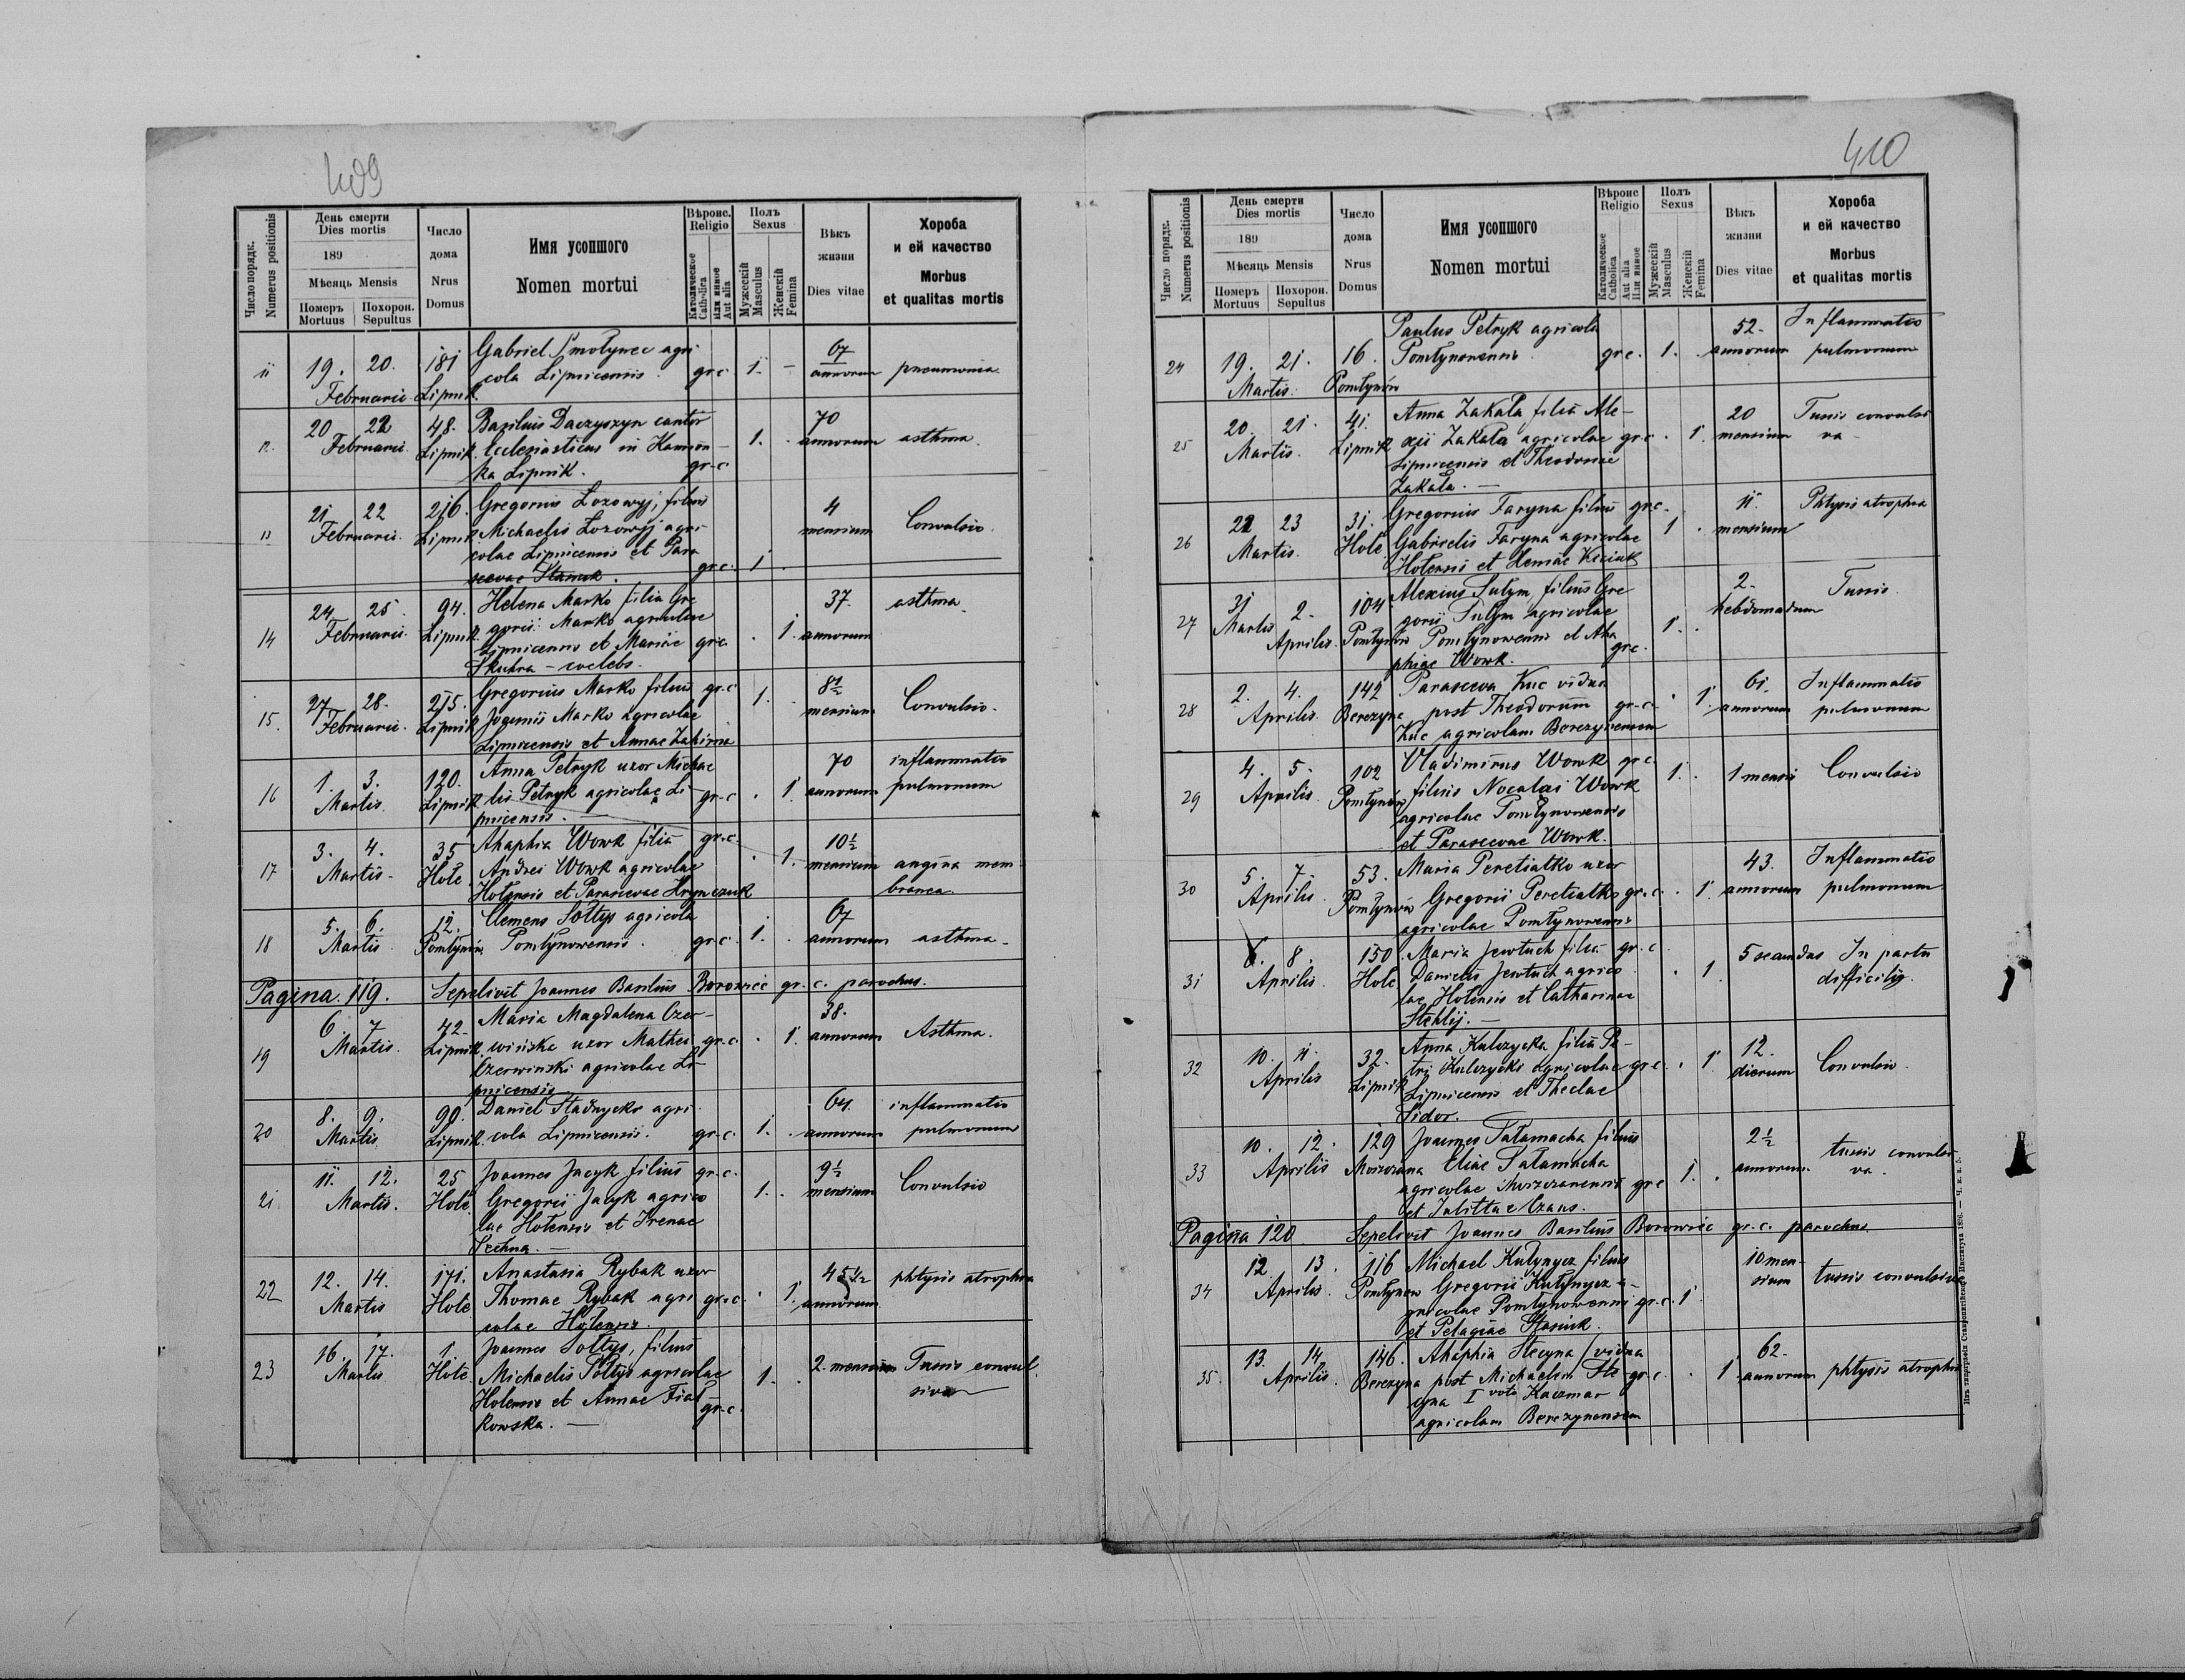 409
Число порядк.
Numerus positionis
День смерти
Dies mortis
189
Мѣсяць Mensis
Померъ
Mortuus
Похорон.
Sepultus
Число
дома
Nrus
Domus
Имя усопшого
Nomen mortui
Вѣроис.
Religio
Католическое
Catholica
Или иное
Aut alia
Полъ
Sexus
Мужескій
Masculus
Женскій
Femina
Вѣкъ
жизни
Dies vitae
Хороба
и ей качество
Morbus
et qualitas mortis
11 19. 20. Februarii 181 Lipnik.
Gabriel Smotynec agri
cola Lipnicensis. gr.c 1. –
67 annorum pneumonia.
12. 20 22 Februarii 48. Lipnik.
Basilius Daczyszyn cantor
Ecclesiasticus in Kamion-
ka Lipnik. gr.c 1.
70 annorum asthma.
13 21 22 Februarii. 216. Lipnik
Gregorius Lozowyj, filius
Michaelis Lozowyj agri-
colae Lipnicensis et Para
scevae Stamok. gr.c. 1
4 mensium Convulsio.
14 24 25. Februarii. 94. Lipnik.
Helena Marko filia Gre
gorii Marko agricolae
Lipnicensis et Mariae gr.c
Skuhra – coelebs. 1.
37. annorum asthma.
15. 27 28. Februarii. 215. Lipnik
Gregorius Marko filius gr.c
Marko agricolae
Lipnicensis et Annae 1.
8½ mensium Convulsio.
16 1. 3. Martis. 120. Lipnik
Anna Petryk uxor Michae
lis Petryk agricolae Li gr.c
pnicensis. – 1.
70 annorum inflammatio
pulmonum
17 3. 4. Martis. 35 Hole
Ahaphia Wowk filia gr.c
Andrei Wowk agricolae
Holensis et Parascevae Hrynczuk 1.
10½ mensium angina mem
branea.
18 5. 6. Martis 12. Pomłynów
Clemens Sołtys agricola
Pomłynowensis. gr.c. 1.
67 annorum asthma.
Pagina 119. Sepelivit Joannes Basilius Borowiec gr. c. parochus.
19 6. 7 Martis. 42. Lipnik.
Maria Magdalena Czer-
wińska uxor Mathei gr.c.
Czerwinski agricolae Li-
pnicensis 1.
38. annorum Asthma.
20 8. 9. Martis 99. Lipnik.
Daniel Stadnycko agri
cola Lipnicensis. gr.c. 1.
64. annorum inflammatio
pulmonum
21 11. 12. Martis. 25 Hole
Joannes Jacyk filius gr.c.
Gregorii Jacyk agrico
lae Holensis et Irenae
1.
9½ mensium Convulsio
22 12. 14. Martis 171. Hole
Anastasia Rybak uxor
Thomae Rybak agri gr.c.
colae Holensis. 1.
45½ annorum phtysis atrophia
23 16. 17. Martis 1. Hole
Joannes Sołtys, filius
Michaelis Sołtys agricolae
Holensis et Annae Fiał-
kowska. – gr.c. 1.
2. mensium Tussis convul
siva
410
Число порядк.
Numerus positionis
День смерти
Dies mortis
189
Мѣсяць Mensis
Померъ
Mortuus
Похорон.
Sepultus
Число
дома
Nrus
Domus
Имя усопшого
Nomen mortui
Вѣроис
Religio
Католическое
Catholica
Aut alia
Или иное
Полъ
Sexus
Мужескій
Masculus
Женскій
Femina
Вѣкъ
жизни
Dies vitae
Хороба
и ей качество
Morbus
et qualitas mortis
24 19. 21. Martis. 16. Pomłynów
Paulus Petryk agricola
Pomłynowensis. gr.c. 1.
52. annorum Inflammatio
pulmonum
25 20. 21. Martis. 41. Lipnik
Anna Zakała filia Ale-
xii Zakała agricolae gr.c
Lipnicensis et Theodosiae
Zakała. – 1.
20 mensium Tussis convulsi
va –
26 22 23 Martis. 31. Hole
Gregorius Faryna filius gr.c.
Gabrielis Faryna agricolae
Holensis et Xeniae Kiciuk 1
11 mensium Phtysis atrophia
27 31 Martis 2. Aprilis. 104 Pomłynów
Alexius Tutym, filius Gre
gorii Tutym agricolae
Pomłynowensis et Aha
phiae Wowk. gr.c. 1.
2. hebdomadum Tussis
28 2. 4. Aprilis. 142 Berezyna
Parasceva Kuc vidua
post Theodorum gr.c.
Kuc agricolam Berezynensem 1.
61. annorum Inflammatio
pulmonum
29 4. 5. Aprilis. 102 Pomłynów
Vladimirus Wowk gr.c.
filius Nocolai Wowk
agricolae Pomłynowensis
et Parascevae Wowk. 1.
1 mensis Convulsio
30 5. 7. Aprilis. 53. Pomłynów
Maria Peretiatko uxor
Gregorii Peretiatko gr.c.
agricolae Pomłynowensis 1.
43. annorum Inflammatio
pulmonum
31 8. Aprilis. 150 Hole
Maria Jewtuch filia gr.c
Danielis Jewtuch agrico
lae Holensis et Catharinae
Stehlij. – 1.
5 secundas In partu
difficily.
32 10. 11. Aprilis 32. Lipnik
Anna Kulczycka filia Pe-
tri Kulczycki agricolae gr.c.
Lipnicensis et Theclae
Sidor. 1.
12. dierum Convulsio.
33 10. 12. Aprilis 129
Joannes Tatamacha filius
Eliae Tatamacha
agricolae gr.c
et Julittae 1.
2½ annorum. tussis convulsi
va.
Pagina 120 Sepelivit Joannes Basilius Borowiec gr.c. parochus
34 12. 13. Aprilis. 116 Pomłynów
Michael Kutynycz filius
Gregorii Kutynycz a-
gricolae Pomłynowensis gr.c. 1
et Pelagiae Stasiuk.
10 men-
sium tussis convulsiva
35. 13. 14 Aprilis. 146. Berezyna
Ahaphia Stecyna (vidua
post Michaelem Ste gr.c.
cyna I voto Kaczmar
agricolam Berezynensem 1
62. annorum phtysis atrophia
Изъ типографіи Ставропигійского Института 1896. – Ч. и. в. 5.